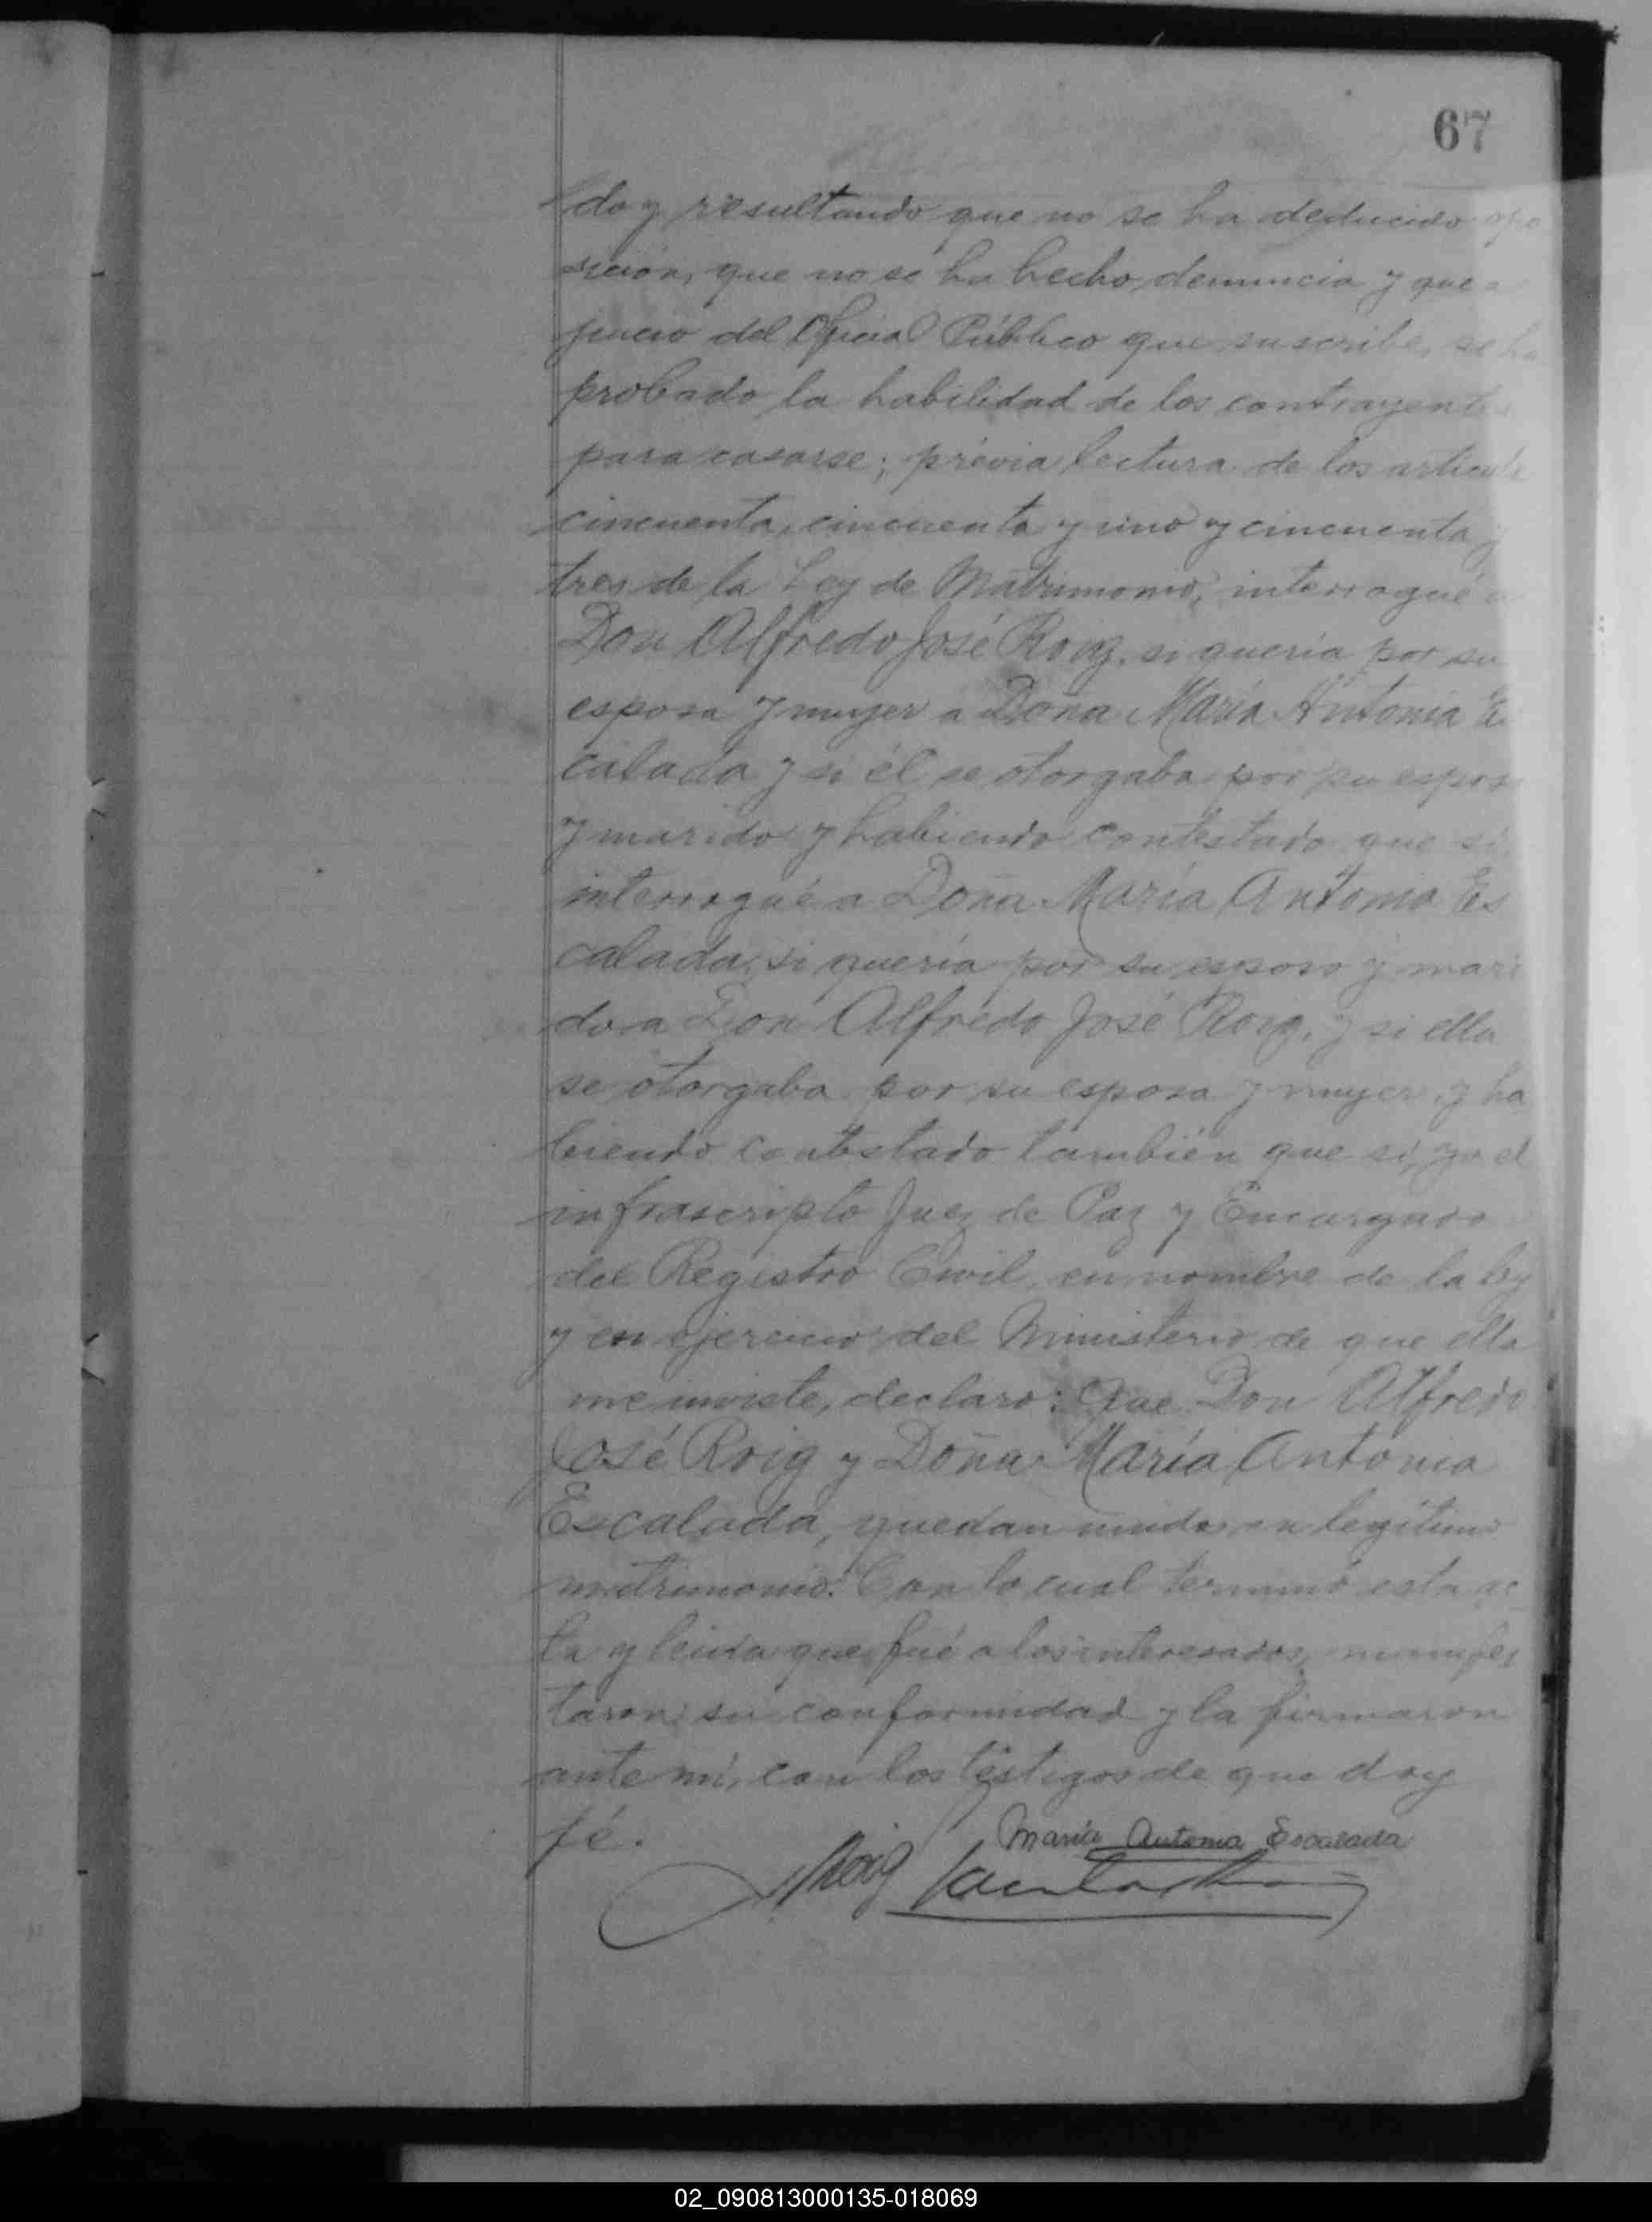 67
do y resultando que no se ha deducido opo
sición, que no se ha hecho denuncia y que a
juicio del Oficial Público que suscribe, se ha
probado la habilidad de los contrayentes
para casarse; prévia lectura de los artícul
cincuenta, cincuenta y uno y cincuenta y
tres de la Ley de Matrimonio, interrogué a
Don Alfredo José Roig, si quería por su
esposa y mujer a Doña María Antonia Es
calada y si él se otorgaba por su esposo
y marido y habiendo contestado que si,
interrogué a Doña María Antonia Es
calada, si quería por su esposo y mari
do a Don Alfredo José Roig, y si ella
se otorgaba por su esposa y mujer, y ha
biendo contestado también que sí, yo el
infrascripto Juez de Paz y Encargado
del Registro Civil, en nombre de la ley
y en ejercicio del Ministerio de que ella
me inviste, declaro: Que Don Alfredo
José Roig y Doña María Antonia
Escalada, quedan unidos en legítimo
matrimonio. Con lo cual terminó esta ac
ta y leída que fué a los interesados, manifes
taron su conformidad y la firmaron
ante mí, con los testigos de que doy
fé.
María Antonia Escalada
Roig
02_090813000135-018069